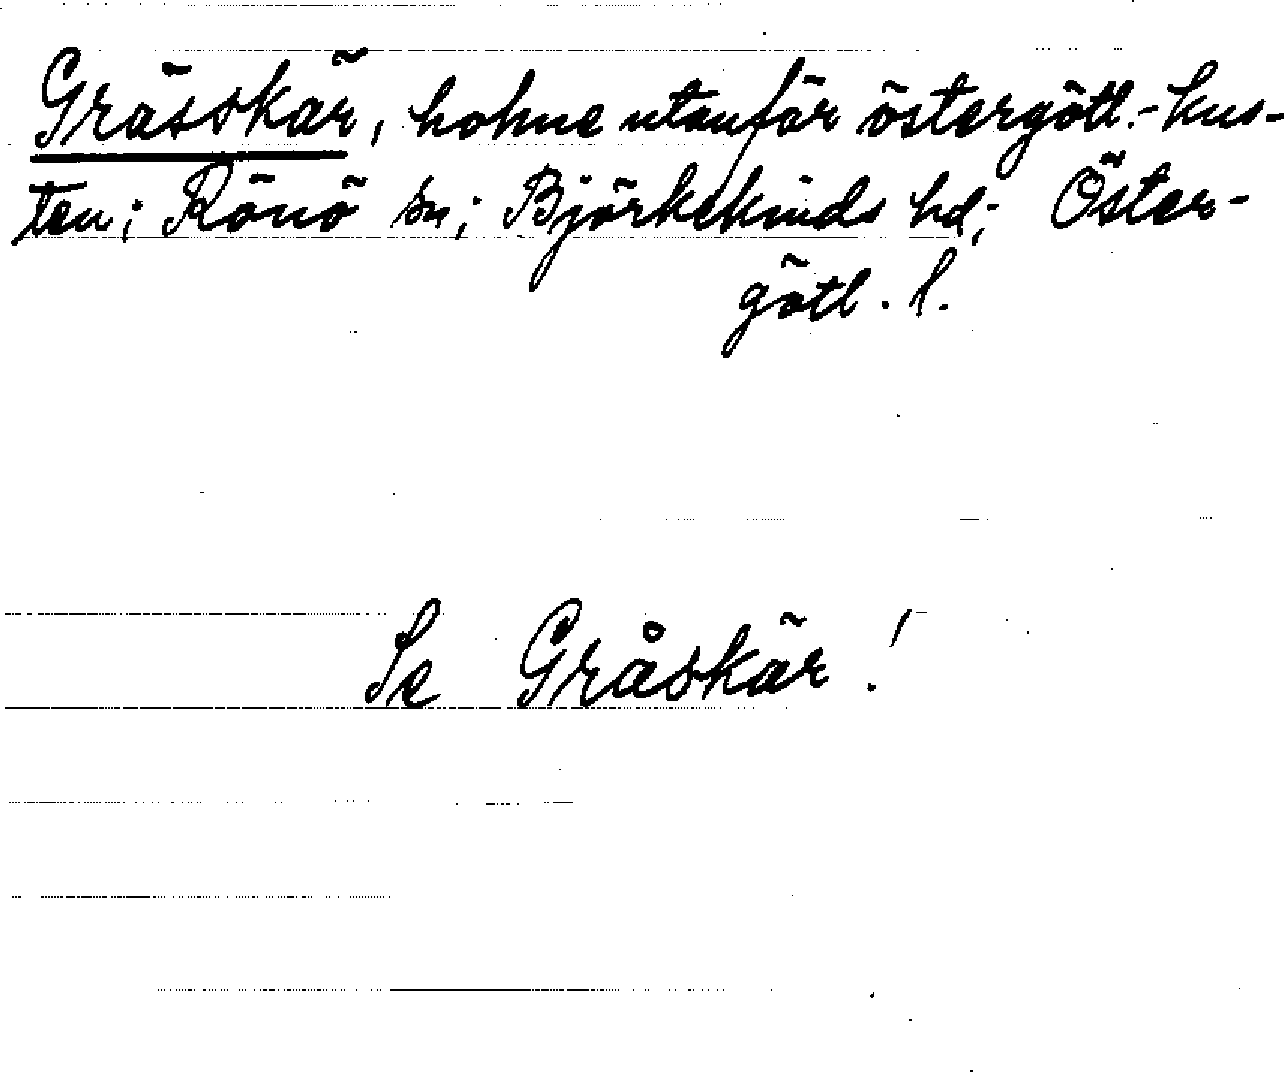 Grässkär, holme utanför östergötl.-kus-
ten; Rönö sn; Björkekinds hd; Öster-
götl. l.
Se Gråskär!